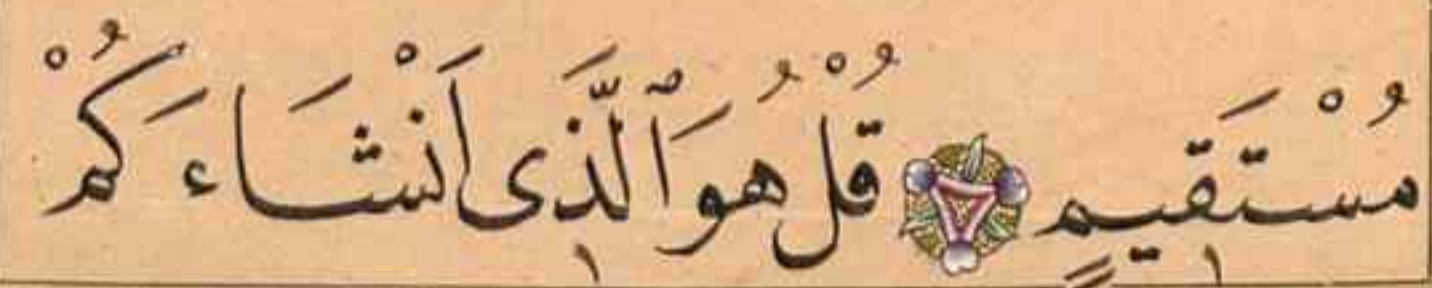 مُسْتَقِيمٍ قُلْ هُوَ ٱلَّذِى اَنْشَاءَ كُمْ